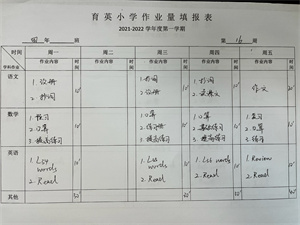 育英小学作业量填报表
2021-2022 学年度第一学期
四 年级 第 16 周
时间 周一 周二 周三 周四 周五
学科作业 作业内容 作业内容 作业内容 作业内容 作业内容
语文 1. 练册 10' 1. 抄词 1. 抄词 作文 20'
2. 抄词 10' 2. 练册
数学 1. 练习 10' 1. 口算 1. 口算 1. 复习
2. 口算 2. 练习册 2. 基础练习 2. 口算
3. 提高练习 3. 提高练习 3. 提高练习 3. 练习
英语 1. L54 words 1. L55 words 1. L56 words 1. Review
2. Read 2. Read 2. Read 2. Read
其他 50' 60' 60' 50'